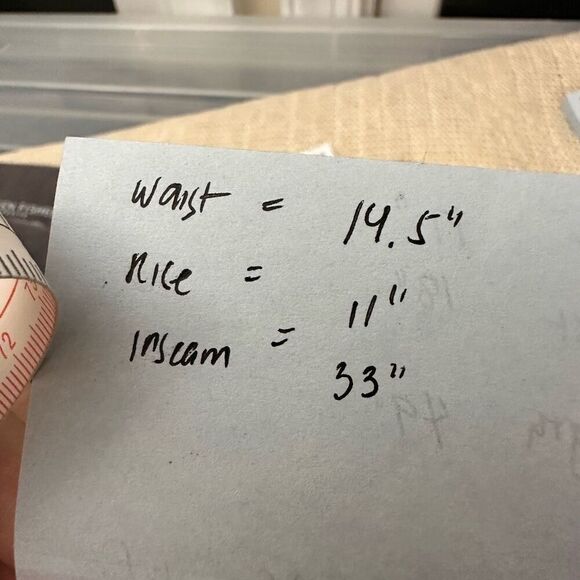 Waist = 14.5"
Rise = 11"
Inseam = 33"
12